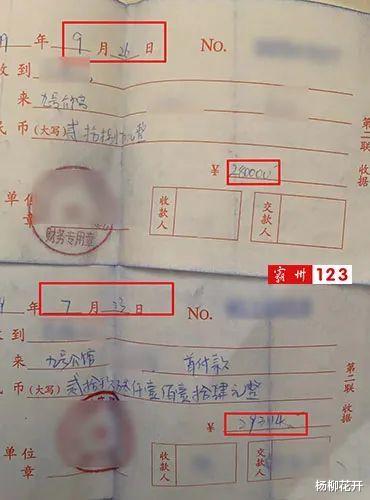 年 9 月 26 日 No.
收 到
来 九号公馆
民 币(大写) 贰拾捌万元整
¥ 280000
单 位
章
财务专用章
收款人
交款人
第二联 收据
霸州 123
年 7 月 23 日 No.
收 到
来 九号公馆 首付款
币(大写) 贰拾玖万叁仟壹佰壹拾肆元整
¥ 293114
单 位
章
收款人
交款人
第二联 收据
杨柳花开